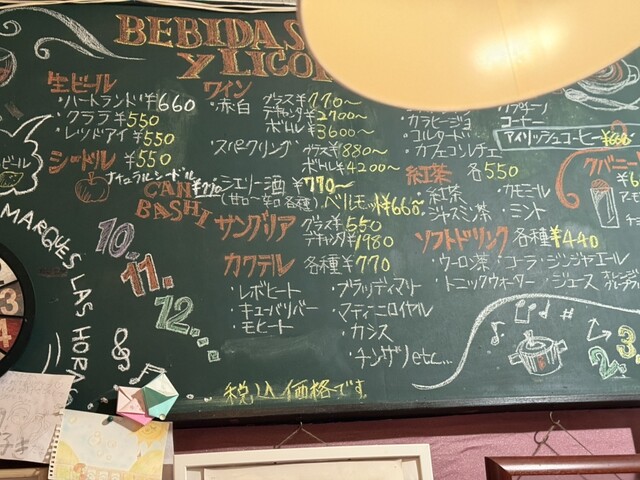 BEBIDAS
Y LICO
生ビール
・ハートランド¥660
・クララ ¥550
・レッドアイ ¥550
シードル ¥550
ナチュラルシードル
¥770
CAN
BASHI
ワイン
・赤・白 グラス¥770〜
デキャンタ¥2700〜
ボトル¥3600〜
・スパークリング グラス¥880〜
ボトル¥4200〜
シェリー酒 ¥770〜
(甘口〜辛口各種)
ベルモット¥660〜
サングリア グラス¥550
デキャンタ¥1980
カクテル 各種¥770
・レボヒート
・キューバリバー
・モヒート
・ブラッディマリー
・マティーニロイヤル
・カシス
・チンザノ etc...
・カラヒージョ
・コルタード
・カフェコンレチェ
コーヒー
アイリッシュコーヒー ¥660
紅茶 各550
・紅茶
・ジャスミン茶
・カモミール
・ミント
ソフトドリンク 各種¥440
・ウーロン茶・コーラ・ジンジャエール
・トニックウォーター/ジュース
オレンジ
グレープフル
クバニ
MARQUES LAS HORA
10.
11.
12.
3
4
3.
2.
税込価格です